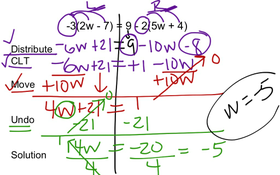 L R
-3(2w + 7) = 9 - 2(5w + 4)
Distribute -6w +21 = 9 -10w -8
CLT -6w +21 = +1 -10w
Move +10w +10w 0
4w +21 = 1
Undo -21 -21 0
Solution 4w/4 = -20/4 = -5
w = -5